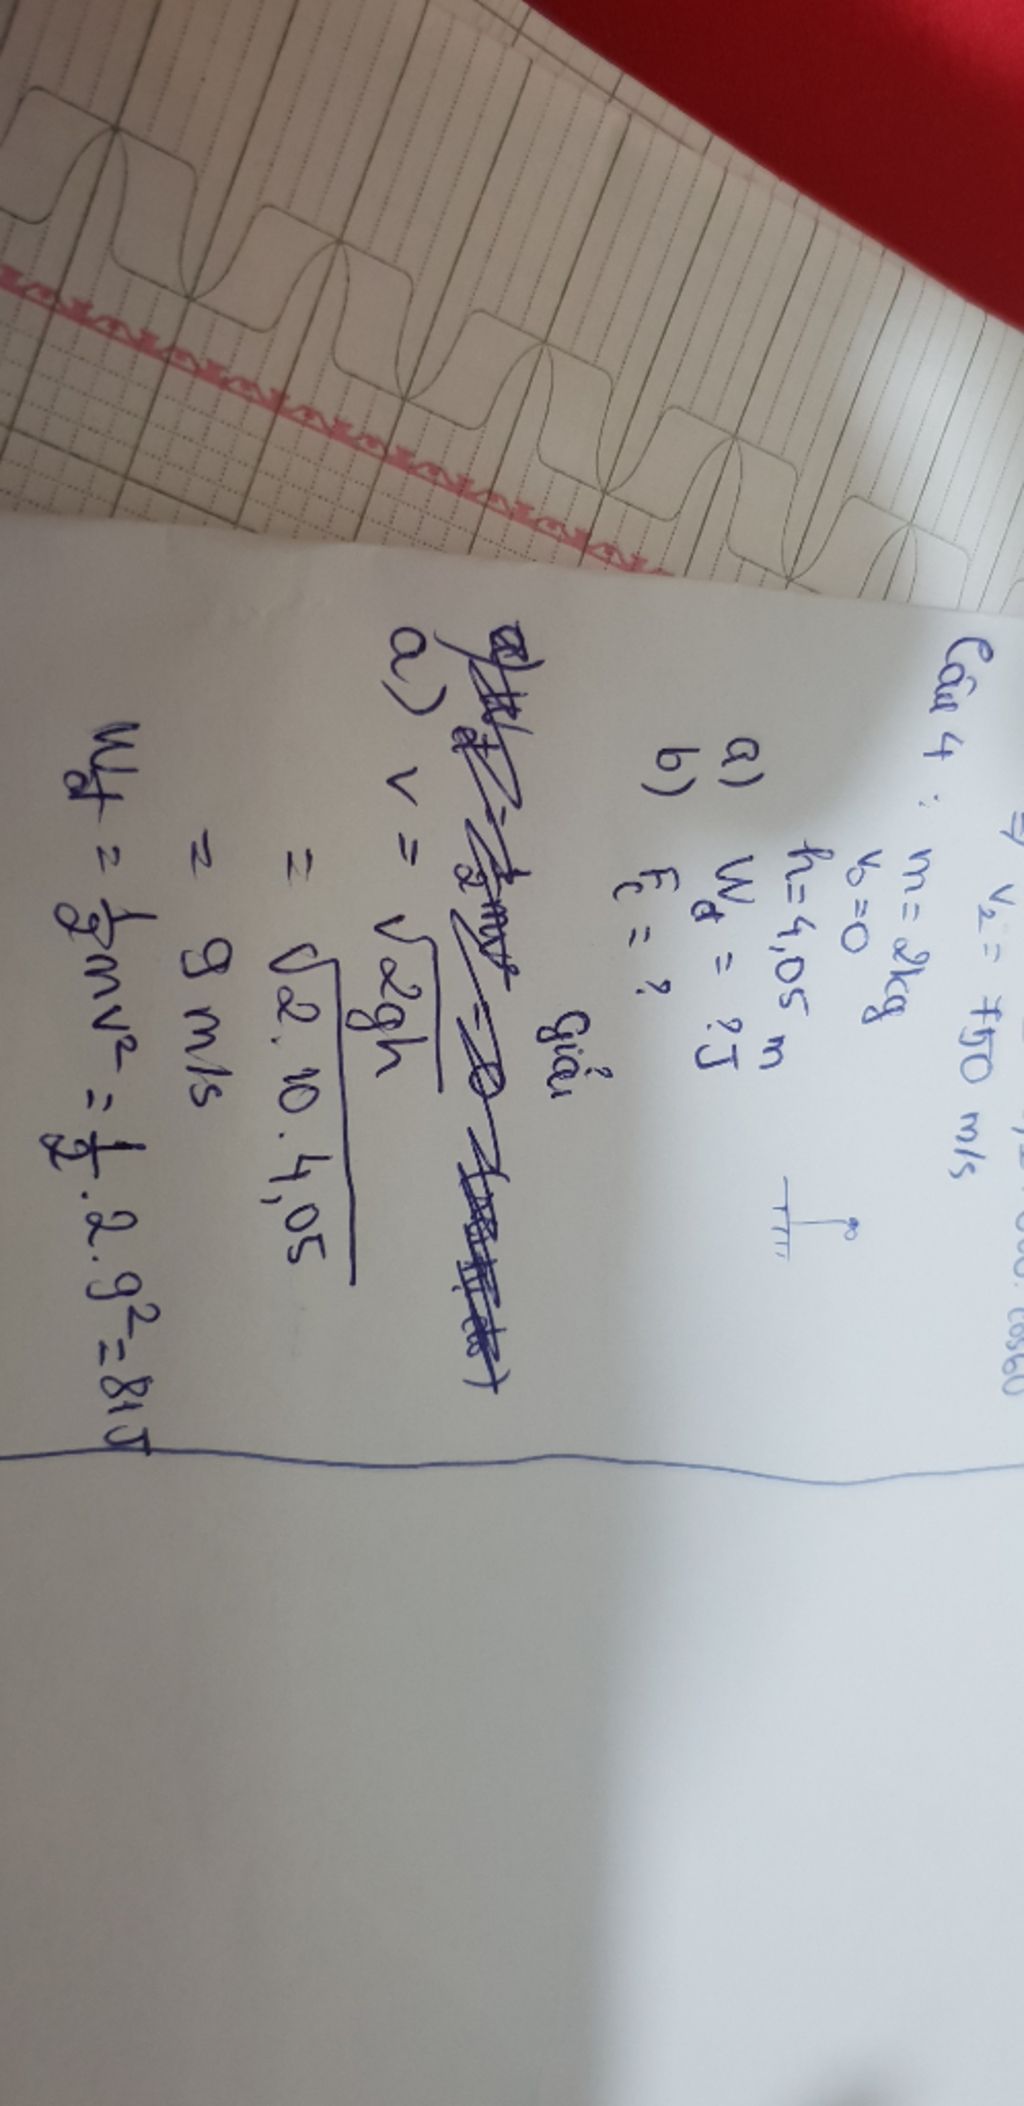 ⇒ v₂ = 750 m/s
Câu 4 : m = 2kg
v₀ = 0
h = 4,05 m
a) Wđ = ? J
b) Fc = ?
Giải
a) v = √2gh
= √2.10.4,05
= 9 m/s
Wđ = 1/2 mv² = 1/2 . 2 . 9² = 81J